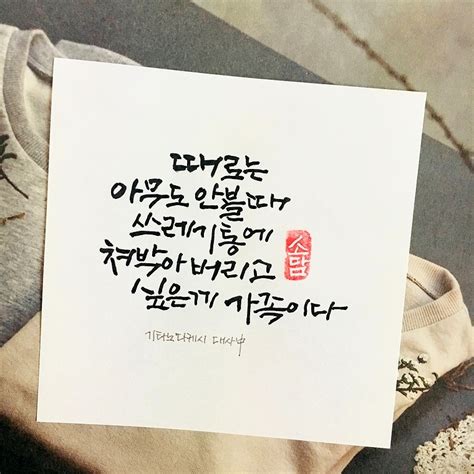 때로는
아무도 안볼때
쓰레기통에
쳐박아 버리고
싶은게 가족이다
소맘
기타노다케시 대사中